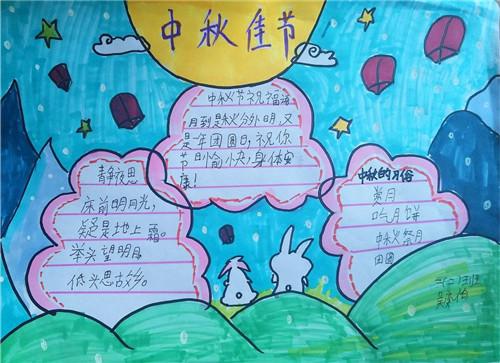 中秋佳节
中秋节祝福语
月到是秋分外明,又
是一年团圆日,祝你
节日愉快,身体安
康!
静夜思
床前明月光,
疑是地上霜。
举头望明月
低头思故乡。
中秋的习俗
赏月
吃月饼
中秋祭月
团圆